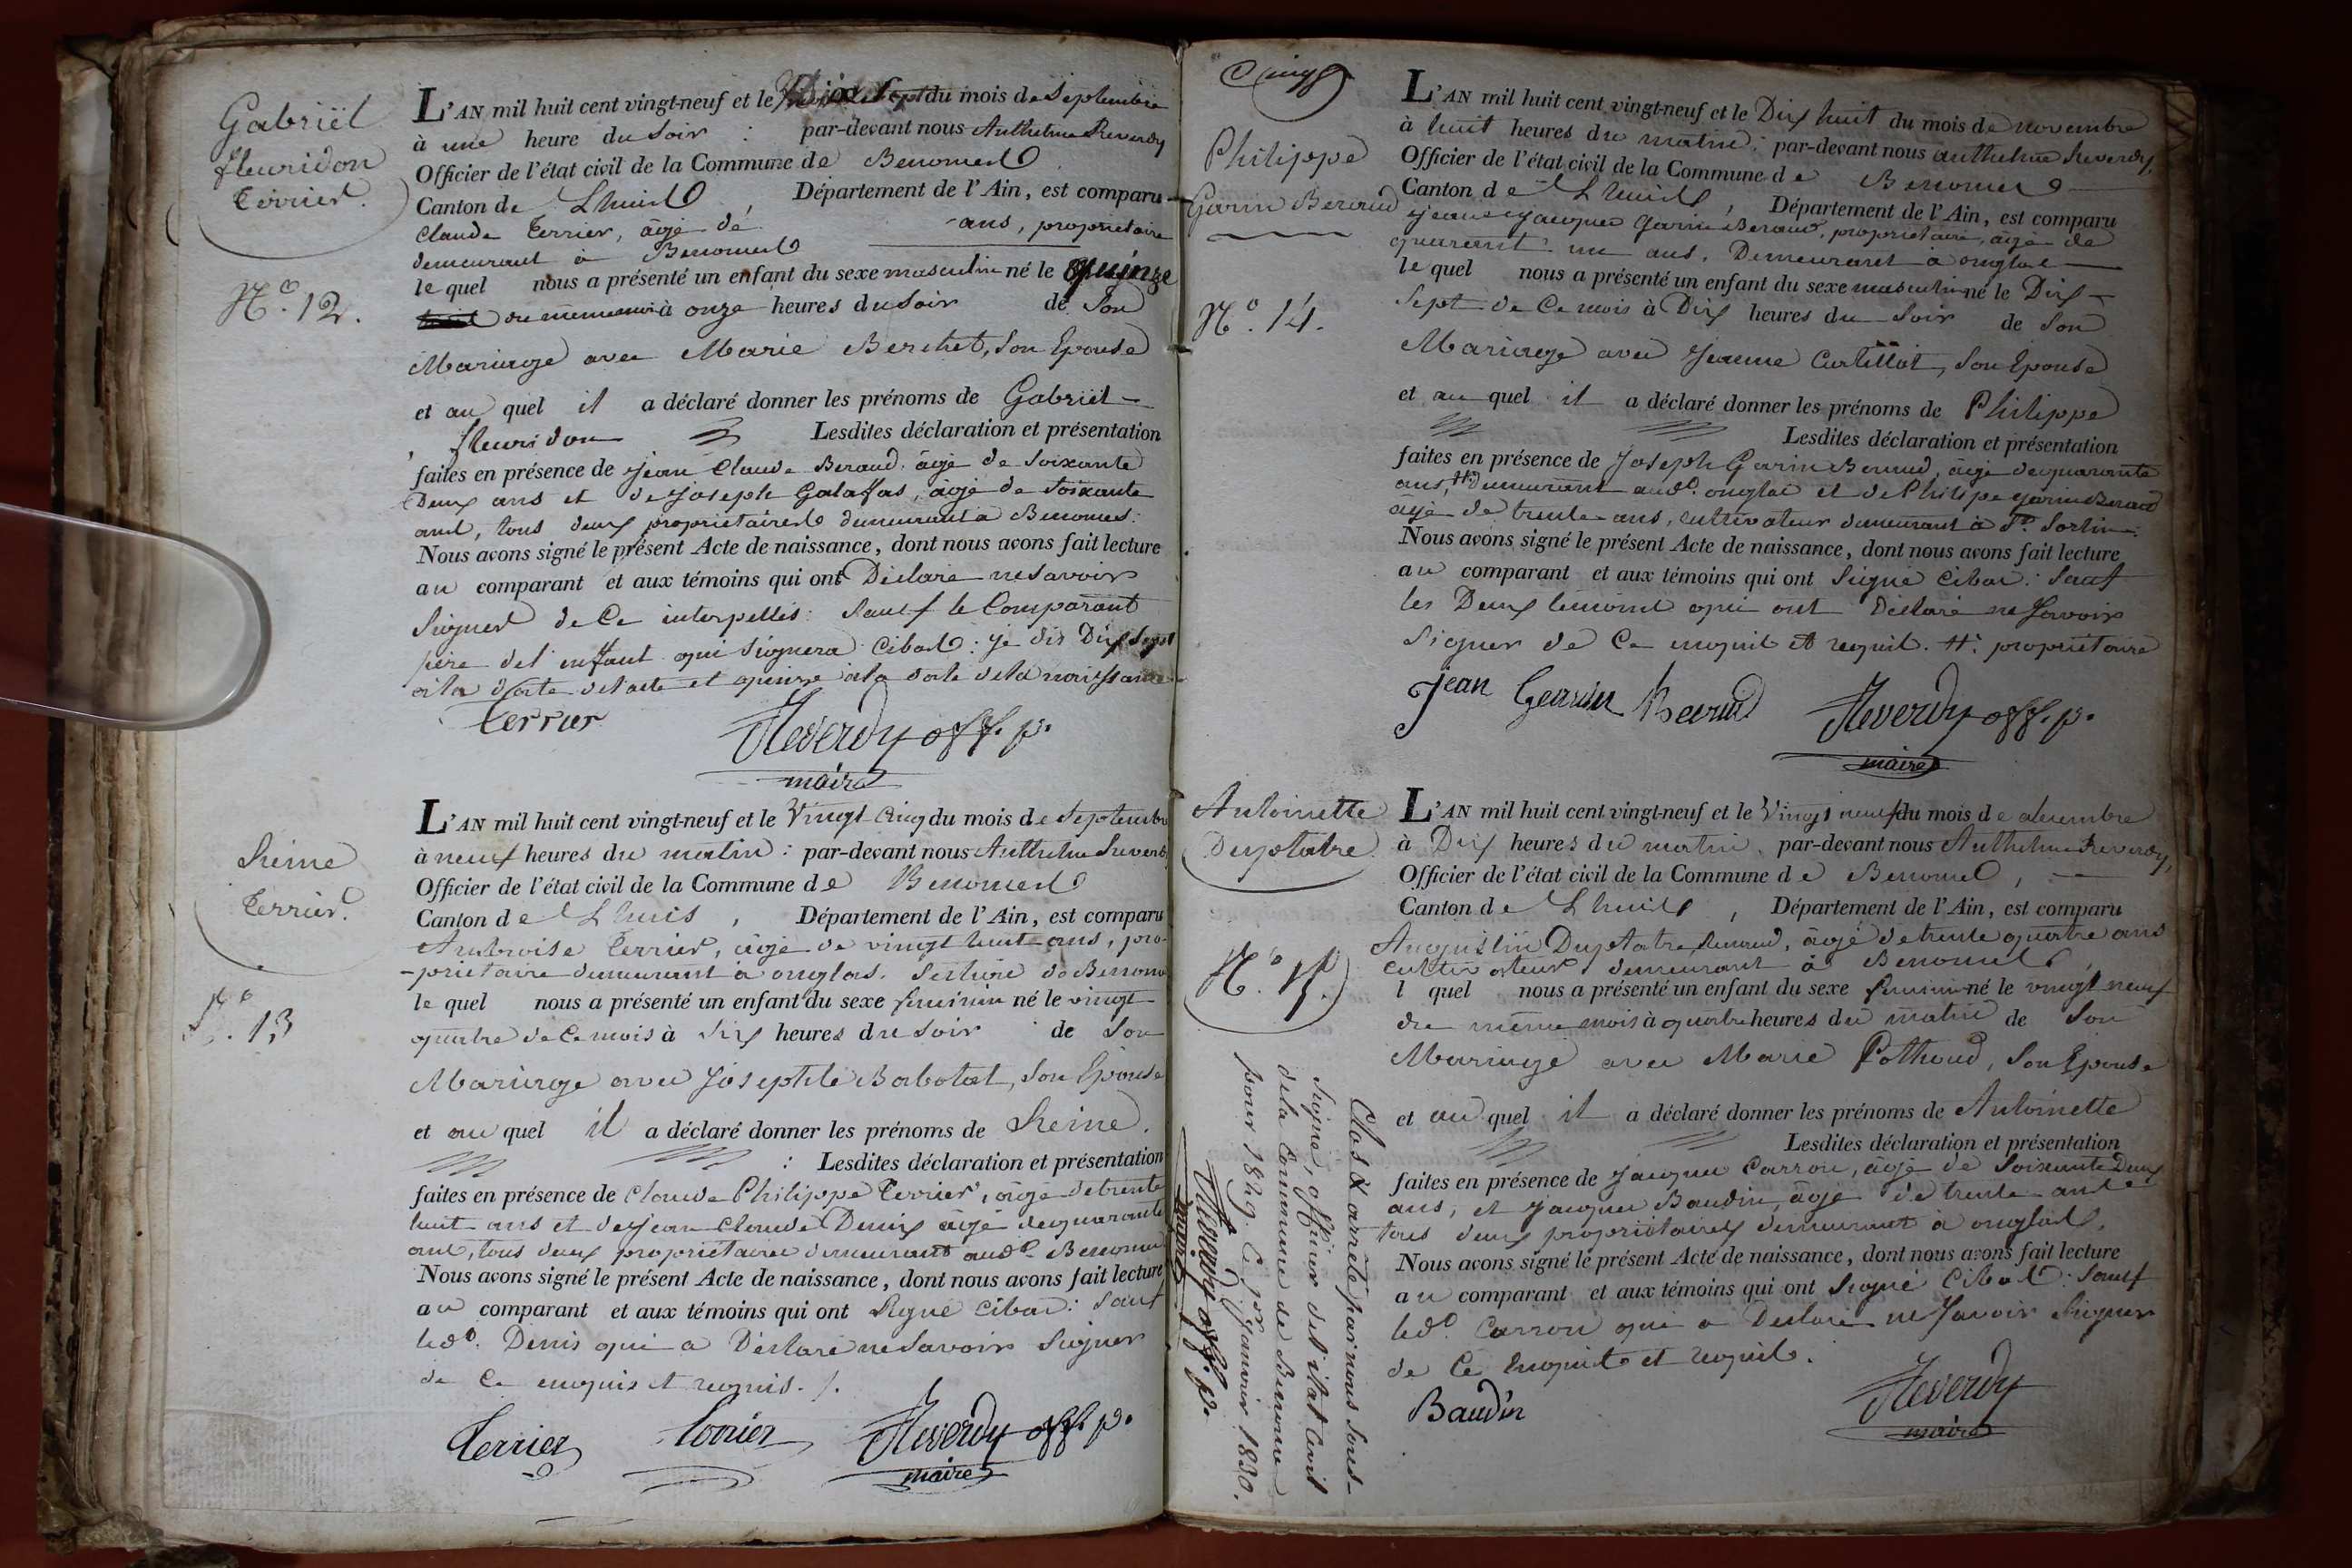 Gabriël
fleuridon
Terrier.
N.o 12.
L'AN mil huit cent vingt-neuf et le Dix Sept du mois de Septembre
à une heure du Soir : par-devant nous Anthelme Reverdy
Officier de l'état civil de la Commune de Benonces
Canton de Lhuis , Département de l'Ain, est comparu
Claude Terrier, âgé de ans, propriétaire
demeurant à Benonces
le quel nous a présenté un enfant du sexe masculin né le quinze
du même mois à onze heures du Soir de Son
Mariage avec Marie Berchet, Son Epouse
et au quel il a déclaré donner les prénoms de Gabriël-
fleuridon Lesdites déclaration et présentation
faites en présence de Jean Claude Beraud, âgé de Soixante
Deux ans et de Joseph Galaffas, âgé de Soixante
ans, tous deux propriétaires demeurant à Benonces.
Nous avons signé le présent Acte de naissance, dont nous avons fait lecture
au comparant et aux témoins qui ont Déclaré ne Savoir
Signer de Ce interpellés : Sauf le Comparant
père de l'enffant qui Signera Cibas : je dis Dix Sept
à la date de l'acte et quinze à la date de la naissance
Terrier Reverdy off. p.
maire
Reine
Terrier.
N.o 13
L'AN mil huit cent vingt-neuf et le Vingt Cinq du mois de Septembre
à neuf heures du matin : par-devant nous Anthelme Reverdy
Officier de l'état civil de la Commune de Benonces
Canton de Lhuis , Département de l'Ain, est comparu
Ambroise Terrier, âgé de vingt huit ans, pro-
-priétaire demeurant à onglas. Section de Benonces
le quel nous a présenté un enfant du sexe feminin né le vingt
quatre de Ce mois à Six heures du Soir de Son
Mariage avec Josephte Babolat, Son Epouse
et au quel il a déclaré donner les prénoms de Reine.
: Lesdites déclaration et présentation
faites en présence de Claude Philippe Terrier, âgé de trente
huit ans et de Jean Claude Denis âgé de quarante
ans, tous deux propriétaires demeurant aud.t Benonces
Nous avons signé le présent Acte de naissance, dont nous avons fait lecture
au comparant et aux témoins qui ont Signé Cibas : Sauf
led.t Denis qui a Déclaré ne Savoir Signer
de Ce enquis et requis. /.
Terrier Terrier Reverdy off. p.
maire
Cinq
Philippe
Garin Beraud
N.o 14.
L'AN mil huit cent vingt-neuf et le Dix huit du mois de novembre
à huit heures du matin : par-devant nous anthelme Reverdy,
Officier de l'état civil de la Commune de Benonces
Canton de Lhuis , Département de l'Ain, est comparu
Jean Jacques Garin Beraud, propriétaire, âgé de
quarant un ans, Demeurant à onglas
le quel nous a présenté un enfant du sexe masculin né le Dix-
Sept de Ce mois à Dix heures du Soir de Son
Mariage avec Jeanne Curtillat, Son Epouse
et au quel il a déclaré donner les prénoms de Philippe
Lesdites déclaration et présentation
faites en présence de Joseph Garin Beraud, âgé de quarante
ans, # demeurant aud.t onglas et de Philipe garin Beraud
âgé de trente ans, cultivateur demeurant à St. Sorlin.
Nous avons signé le présent Acte de naissance, dont nous avons fait lecture
au comparant et aux témoins qui ont Signé Cibas : Sauf
les Deux témoins qui ont Déclaré ne Savoir
Signer de Ce enquis et requis. #: propriétaire
Jean Garin Beraud Reverdy off. p.
maire
Antoinette
Duptatre
N.o 15.
L'AN mil huit cent vingt-neuf et le Vingt neuf du mois de décembre
à Dix heures du matin. par-devant nous Anthelme Reverdy,
Officier de l'état civil de la Commune de Benonces ,
Canton de Lhuis , Département de l'Ain, est comparu
Augustin Duptatre âgé de trente quatre ans
cultivateur demeurant à Benonces
l quel nous a présenté un enfant du sexe feminin né le vingt neuf
du même mois à quatre heures du matin de Son
Mariage avec Marie Pothoud, Son Epouse
et au quel il a déclaré donner les prénoms de Antoinette
Lesdites déclaration et présentation
faites en présence de Jacques Carron, âgé de Soixante Deux
ans, et Jacques Baudin, âgé de trente ans
tous deux propriétaires demeurant à onglas.
Nous avons signé le présent Acte de naissance, dont nous avons fait lecture
au comparant et aux témoins qui ont Signé Cibas : Sauf
led.t Carron qui a Déclaré ne Savoir Signer
de Ce Enquis et requis.
Baudin Reverdy
maire
Clos & arrêté par nous Sous-
signé, officier de l'état Civil
de la Commune de Benonces
pour 1829. Ce 1er Janvier 1830.
Reverdy off. p.
maire